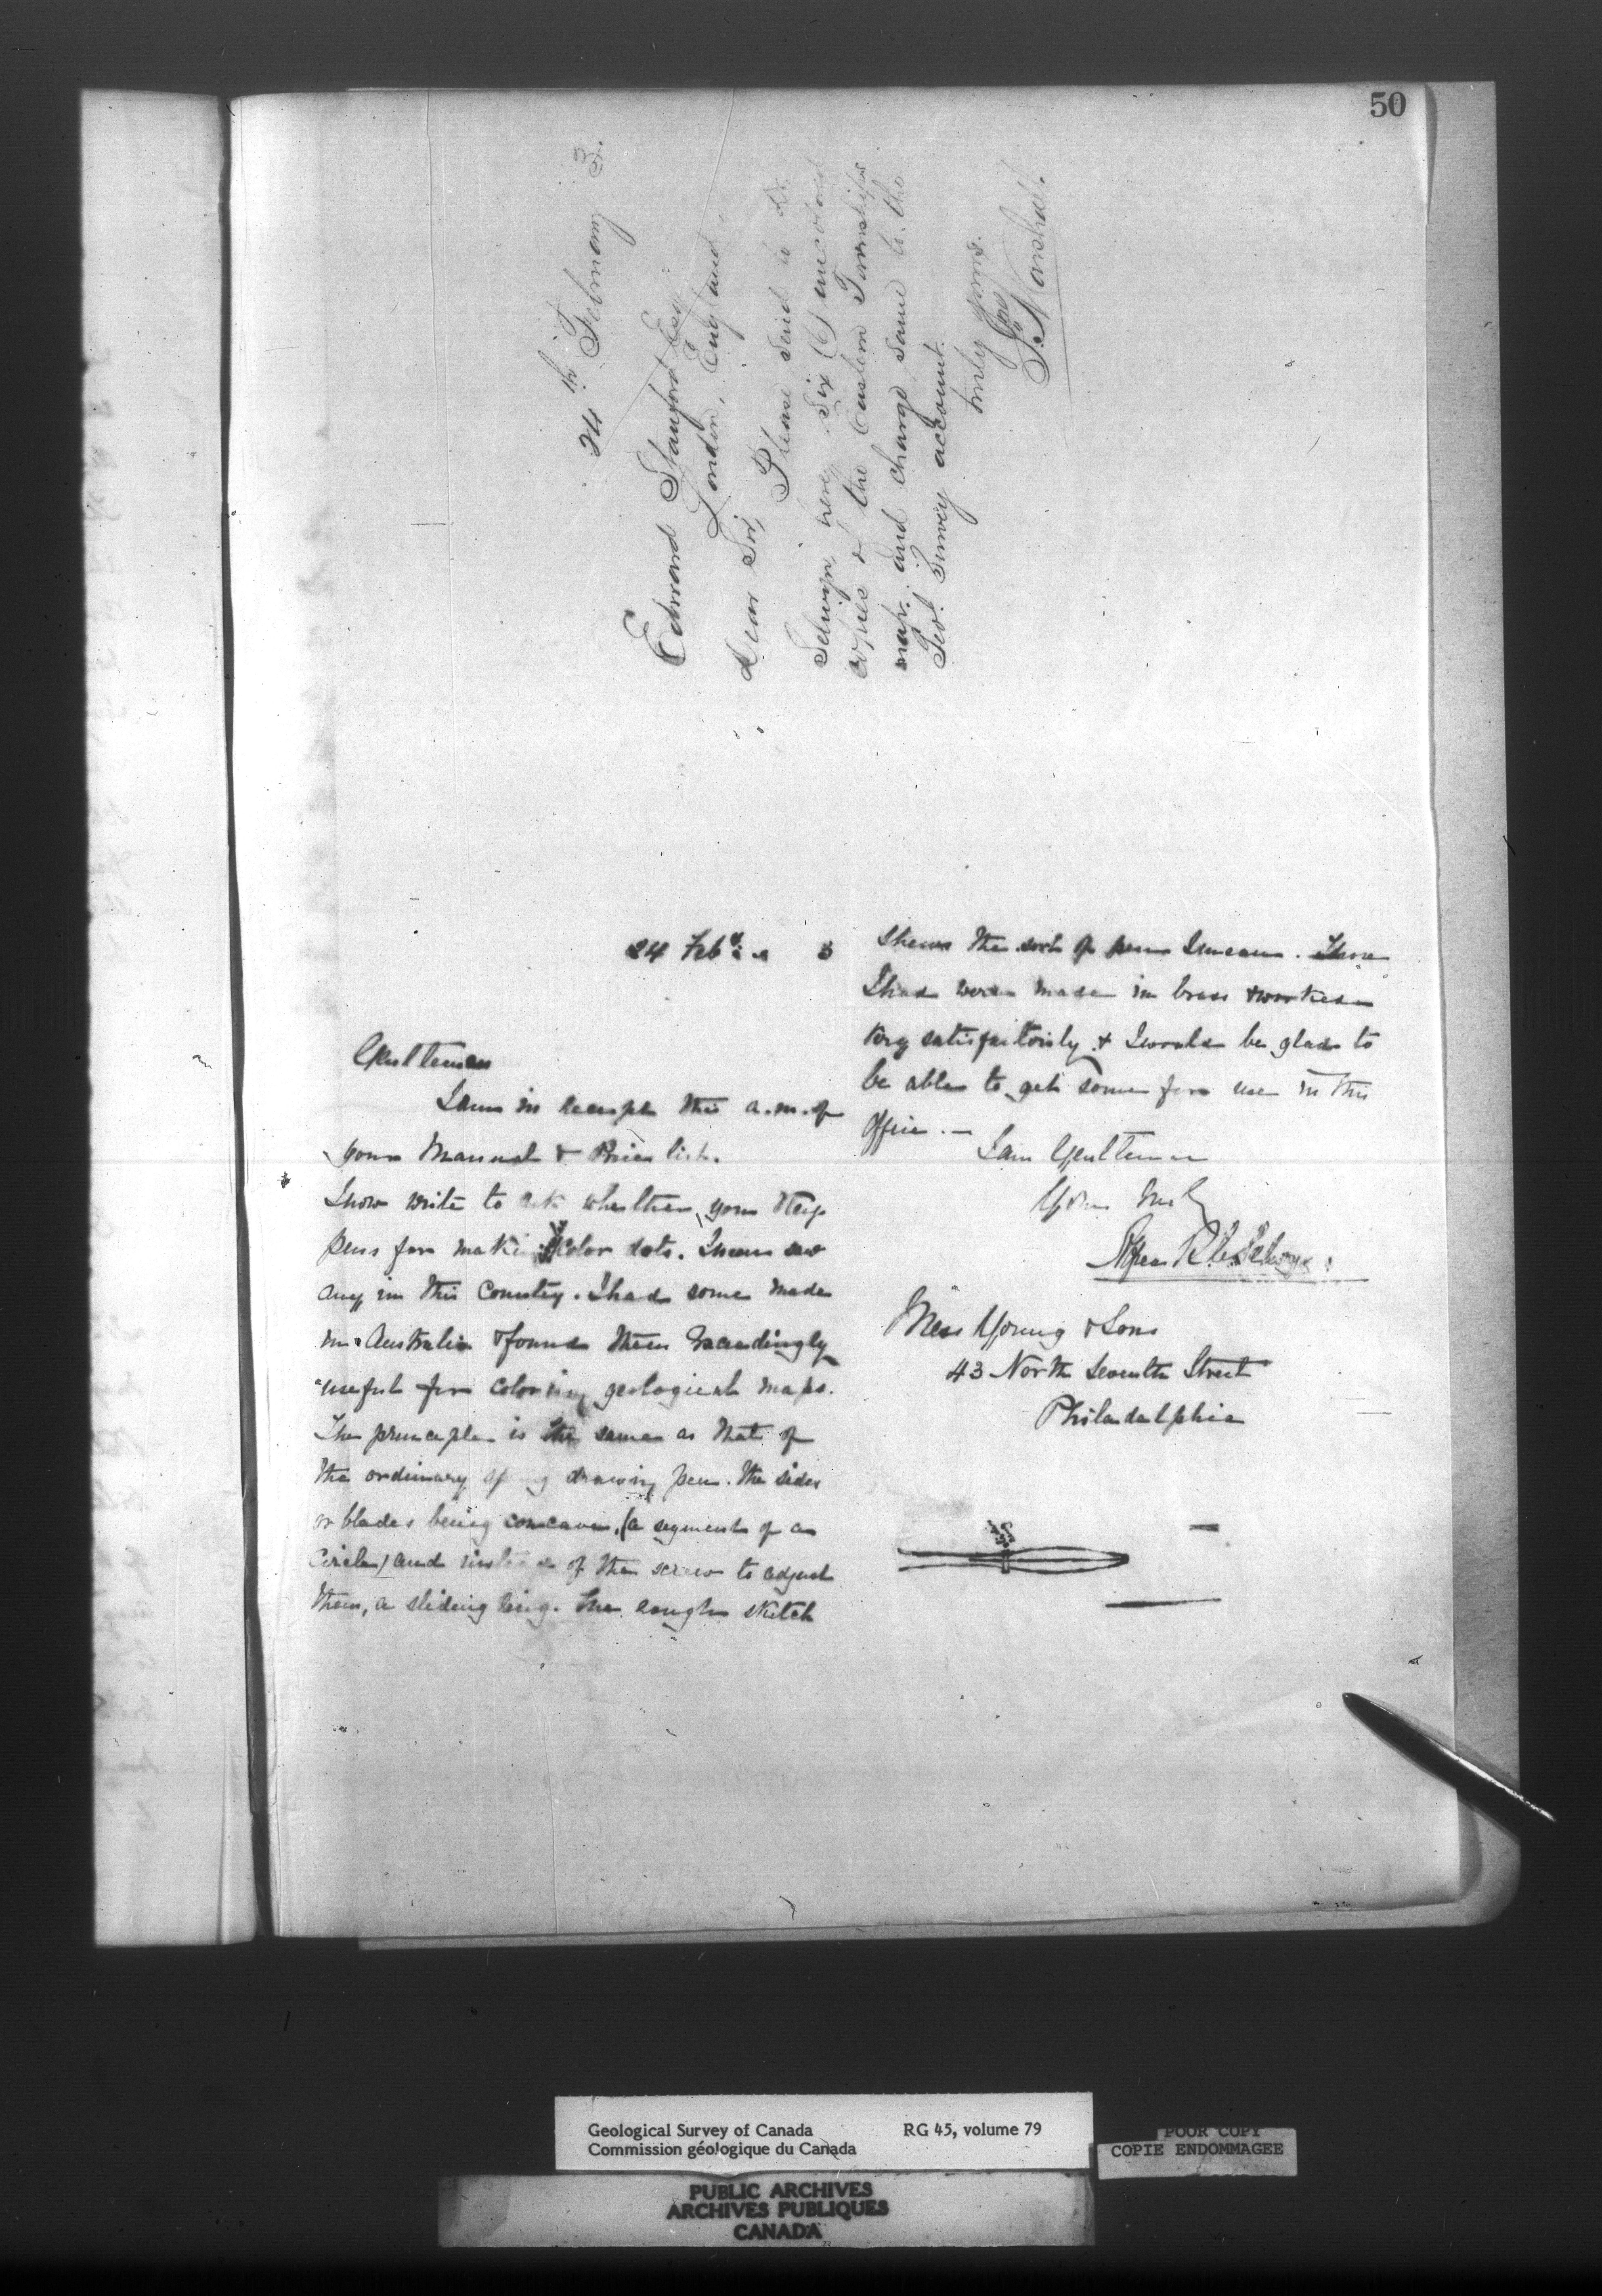 50
24th February 3.
Edward Stanford Esq
London, England.
Dear Sir,
Please send to Dr.
Selwyn here Six (6) uncolored
copies of the Eastern Townships
map. and charge same to the
Geol. Survey account.
truly yours.
Jno Marshall.
24 Feby 3
Gentlemen
I am in receipt this a.m. of
your Manual & Price list.
I now write to ask whether you keep
pens for making color dots. I never saw
any in this Country. I had some made
in Australia & found them exceedingly
useful for coloring geological maps.
The principle is the same as that of
the ordinary spring drawing pen. the sides
or blades being concave, (a segment of a
circle) and instead of the screw to adjust
them, a sliding ring. The rough sketch
shews the sort of pen I mean. Those
I had were made in brass & worked
very satisfactorily & I would be glad to
be able to get some for use in this
Office. —
I am Gentlemen
Yours truly
Alfred R. C. Selwyn
Mess Young & Sons
43 North Seventh Street
Philadelphia
Geological Survey of Canada RG 45, volume 79
Commission géologique du Canada
POOR COPY
COPIE ENDOMMAGEE
PUBLIC ARCHIVES
ARCHIVES PUBLIQUES
CANADA